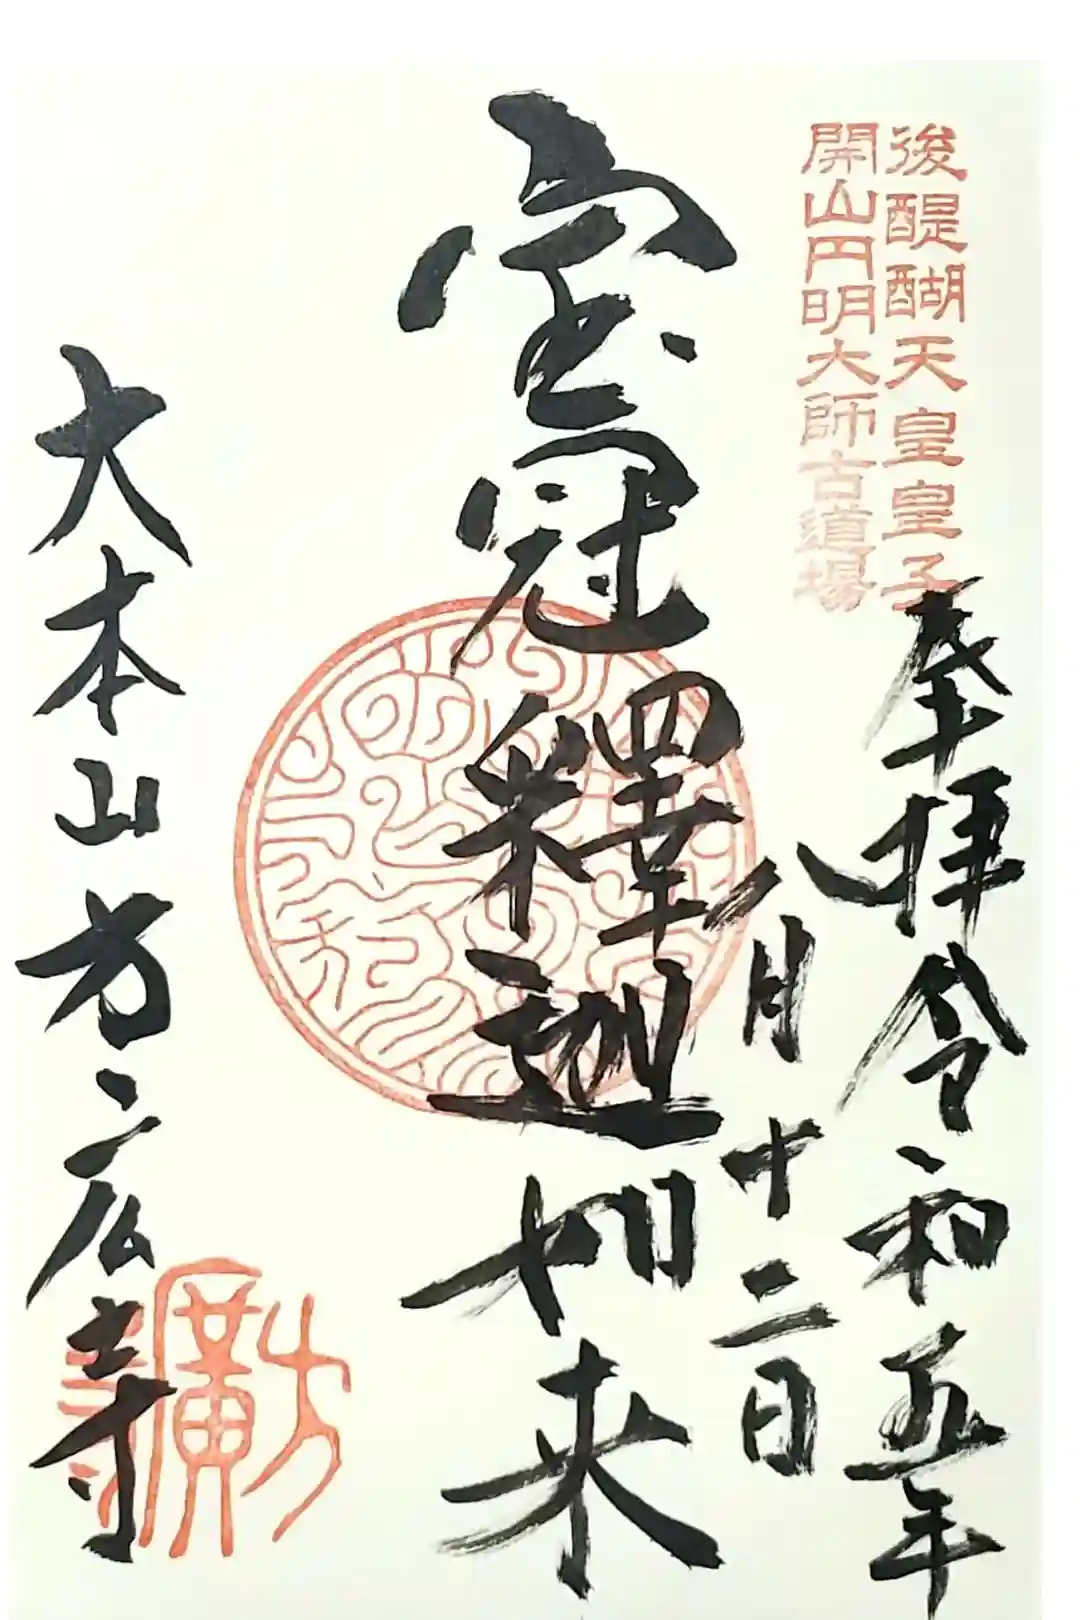 後醍醐天皇皇子
開山円明大師古道場
奉拝令和五年
八月十二日
宝冠釋迦如来
大本山方広寺
方廣寺